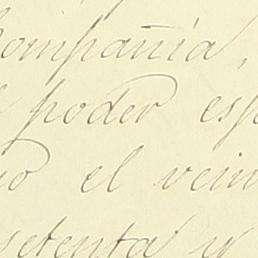 Compañía,
poder esp
el vein
setenta y